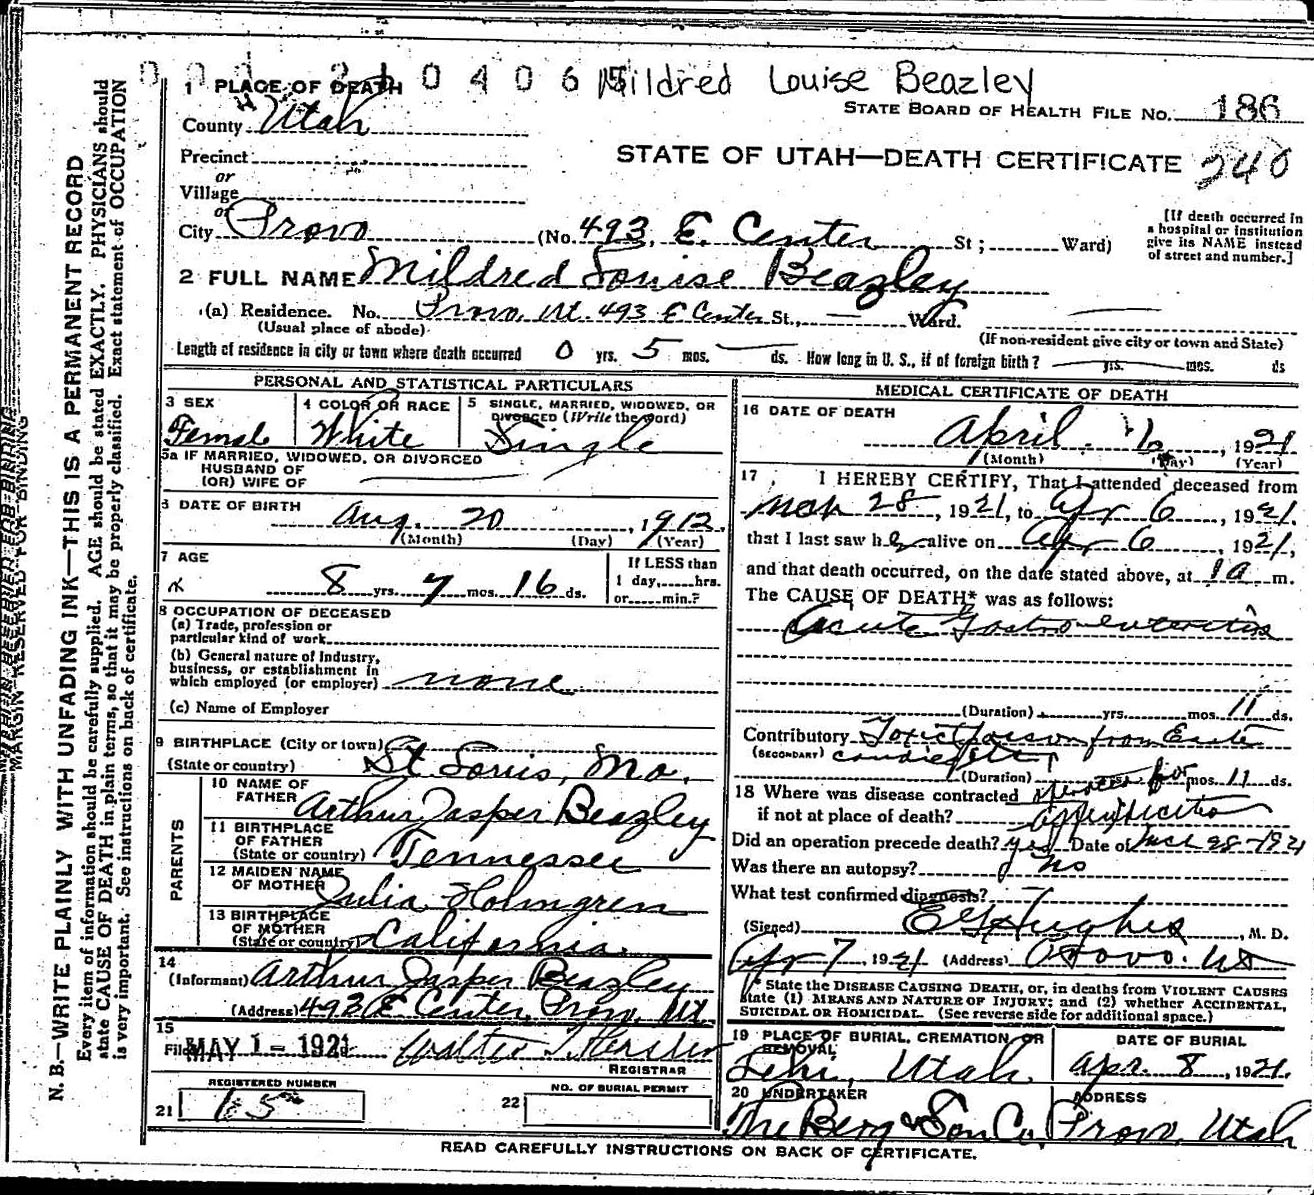 Mildred Louise Beazley
1 PLACE OF DEATH
STATE BOARD OF HEALTH FILE No. 186
County Utah
STATE OF UTAH—DEATH CERTIFICATE 240
Precinct
or
Village
or
City Provo (No. 493, E. Center St; Ward)
[If death occurred in a hospital or institution give its NAME instead of street and number.]
2 FULL NAME Mildred Louise Beazley
(a) Residence. No. Provo, Ut. 493 E Center St., Ward.
(Usual place of abode) (If non-resident give city or town and State)
Length of residence in city or town where death occurred 0 yrs. 5 mos. ds. How long in U. S., if of foreign birth? yrs. mos. ds
PERSONAL AND STATISTICAL PARTICULARS
3 SEX 4 COLOR OR RACE 5 SINGLE, MARRIED, WIDOWED, OR DIVORCED (Write the word)
Female White Single
5a IF MARRIED, WIDOWED, OR DIVORCED
HUSBAND OF
(OR) WIFE OF
6 DATE OF BIRTH Aug. 20, 1912
(Month) (Day) (Year)
7 AGE
8 yrs. 7 mos. 16 ds.
If LESS than
1 day, hrs.
or min.?
8 OCCUPATION OF DECEASED
(a) Trade, profession or
particular kind of work
(b) General nature of Industry,
business, or establishment in
which employed (or employer) none
(c) Name of Employer
9 BIRTHPLACE (City or town)
(State or country) St Louis, Mo.
PARENTS
10 NAME OF
FATHER Arthur Jasper Beazley
11 BIRTHPLACE
OF FATHER
(State or country) Tennessee
12 MAIDEN NAME
OF MOTHER Julia Holmgren
13 BIRTHPLACE
OF MOTHER
(State or country) California.
14
(Informant) Arthur Jasper Beazley
(Address) 493 E Center, Provo, Ut
15
Filed MAY 1 - 1921 Walter T.
REGISTRAR
REGISTERED NUMBER
21
NO. OF BURIAL PERMIT
22
MEDICAL CERTIFICATE OF DEATH
16 DATE OF DEATH
April 6, 1921
(Month) (Day) (Year)
17 I HEREBY CERTIFY, That I attended deceased from
Mch 28, 1921, to Apr 6, 1921.
that I last saw her alive on Apr 6, 1921,
and that death occurred, on the date stated above, at 1 a m.
The CAUSE OF DEATH* was as follows:
Acute Gastro enteritis
(Duration) yrs. mos. 11 ds.
Contributory Toxic poison from Easter
(SECONDARY) candies
(Duration) mos. 11 ds.
18 Where was disease contracted operated for
if not at place of death? appendicitis
Did an operation precede death? yes Date of Mch 28-1921
Was there an autopsy? No
What test confirmed diagnosis?
(Signed) E G Hughes, M. D.
Apr 7, 1921 (Address) Provo. Ut
* State the DISEASE CAUSING DEATH, or, in deaths from VIOLENT CAUSES
state (1) MEANS AND NATURE OF INJURY; and (2) whether ACCIDENTAL,
SUICIDAL OR HOMICIDAL. (See reverse side for additional space.)
19 PLACE OF BURIAL, CREMATION, OR REMOVAL DATE OF BURIAL
Lehi, Utah. Apr. 8, 1921.
20 UNDERTAKER ADDRESS
The Berg & Son Co. Provo, Utah
READ CAREFULLY INSTRUCTIONS ON BACK OF CERTIFICATE.
MARGIN RESERVED FOR BINDING
N. B.—WRITE PLAINLY WITH UNFADING INK—THIS IS A PERMANENT RECORD
Every item of information should be carefully supplied. AGE should be stated EXACTLY. PHYSICIANS should
state CAUSE OF DEATH in plain terms, so that it may be properly classified. Exact statement of OCCUPATION
is very important. See instructions on back of certificate.